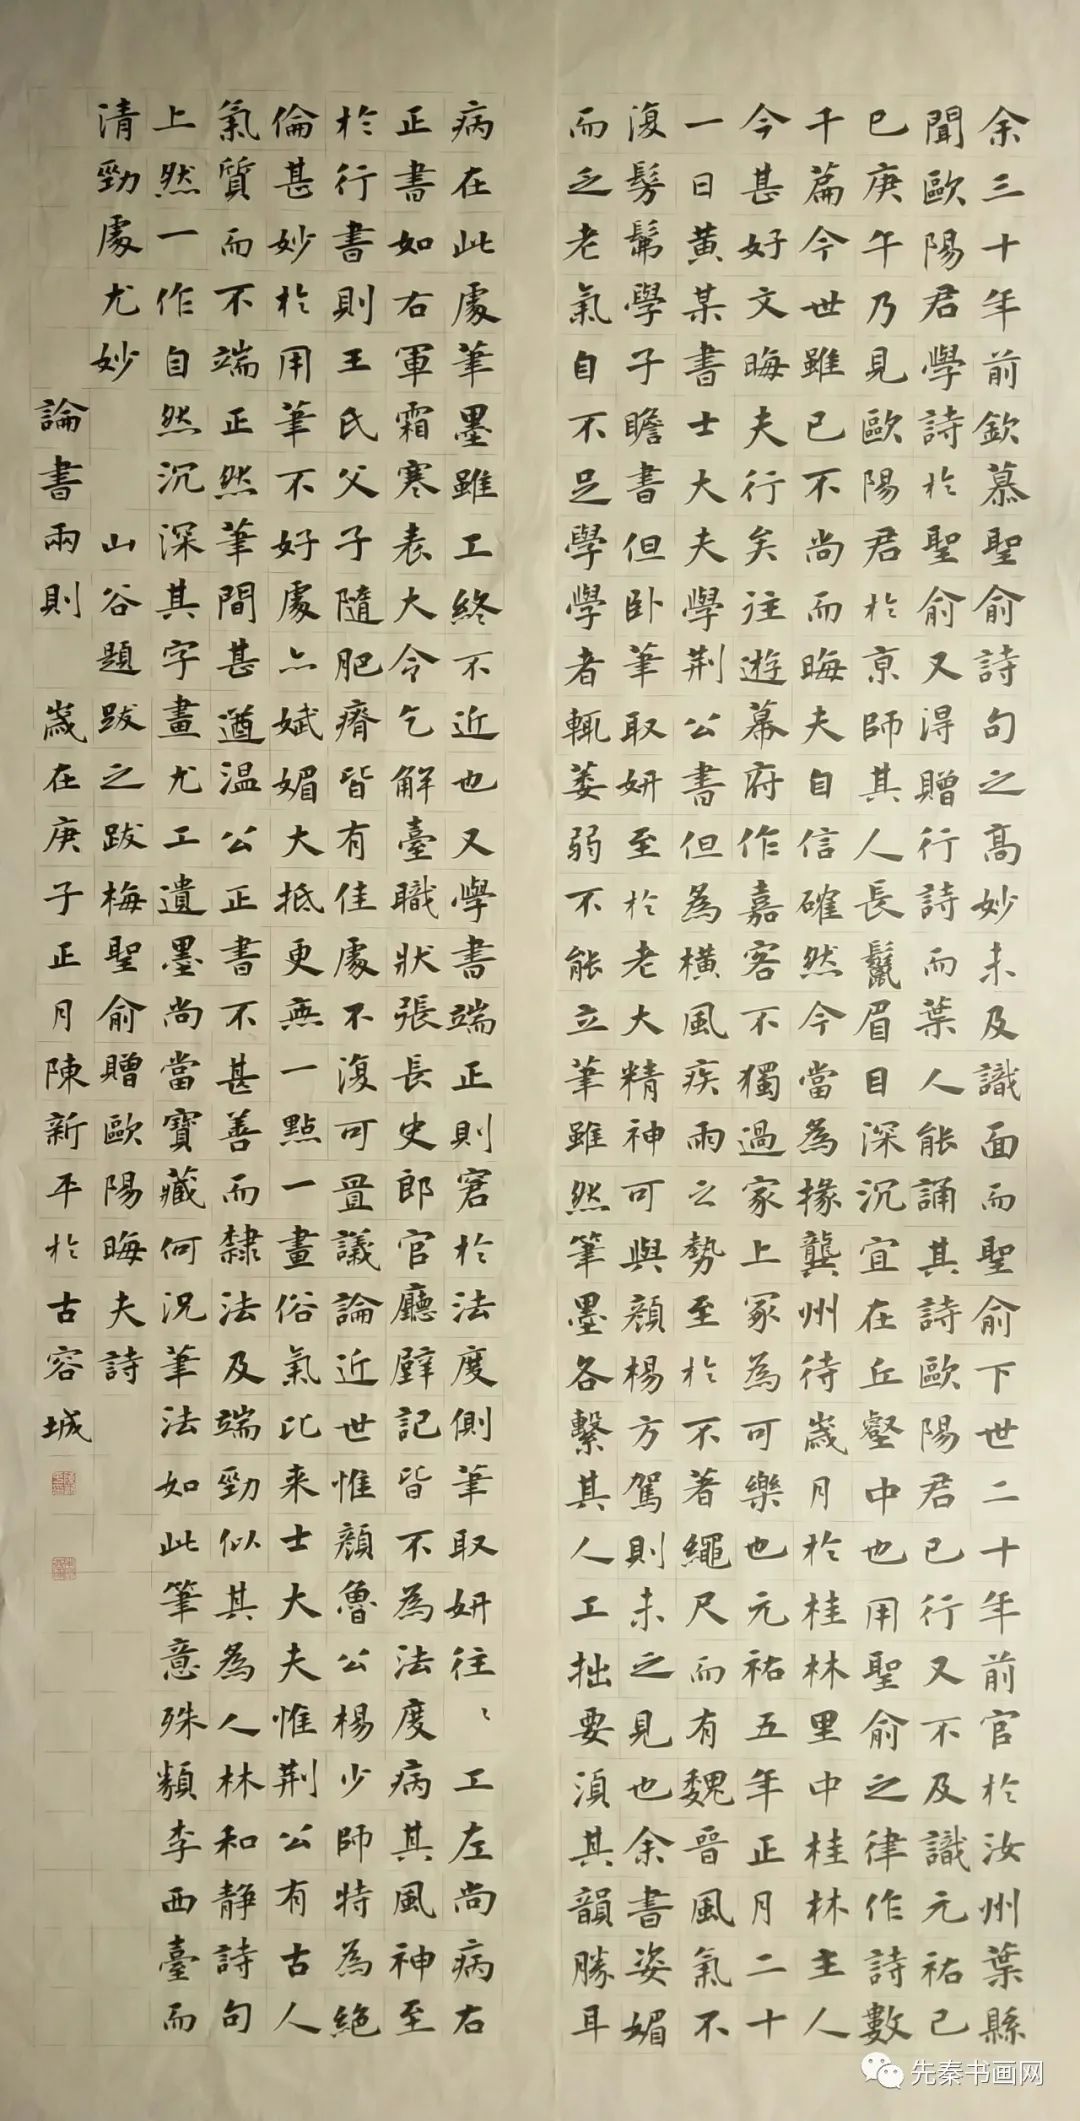 余三十年前欽慕聖俞詩句之高妙未及識面而聖俞下世二十年前官於汝州葉縣
聞歐陽君學詩於聖俞又得贈行詩而葉人能誦其詩歐陽君已行又不及識元祐己
巳庚午乃見歐陽君於京師其人長鬣眉目深沉宜在丘壑中也用聖俞之律作詩數
千篇今世雖已不尚而晦夫自信確然今當為掾龔州待歲月於桂林里中桂林主人
今甚好文晦夫行矣往遊幕府作嘉客不獨過家上冢為可樂也元祐五年正月二十
一日黃某書士大夫學荆公書但為橫風疾雨之勢至於不著繩尺而有魏晉風氣不
復髣髴學子瞻書但卧筆取妍至於老大精神可與顏楊方駕則未之見也余書姿媚
而乏老氣自不足學學者輒萎弱不能立筆雖然筆墨各繫其人工拙要須其韻勝耳
病在此處筆墨雖工終不近也又學書端正則窘於法度側筆取妍往〻工左尚病右
正書如右軍霜寒表大令乞解臺職狀張長史郎官廳壁記皆不為法度病其風神至
於行書則王氏父子隨肥瘠皆有佳處不復可置議論近世惟顏魯公楊少師特為絕
倫甚妙於用筆不好處亦娬媚大抵更無一點一畫俗氣比来士大夫惟荆公有古人
氣質而不端正然筆間甚遒温公正書不甚善而隸法及端勁似其為人林和靜詩句
上然一作自然沉深其字畫尤工遺墨尚當寶藏何況筆法如此筆意殊類李西臺而
清勁處尤妙 山谷題跋之跋梅聖俞贈歐陽晦夫詩
論書兩則 歲在庚子正月陳新平於古容城
先秦书画网